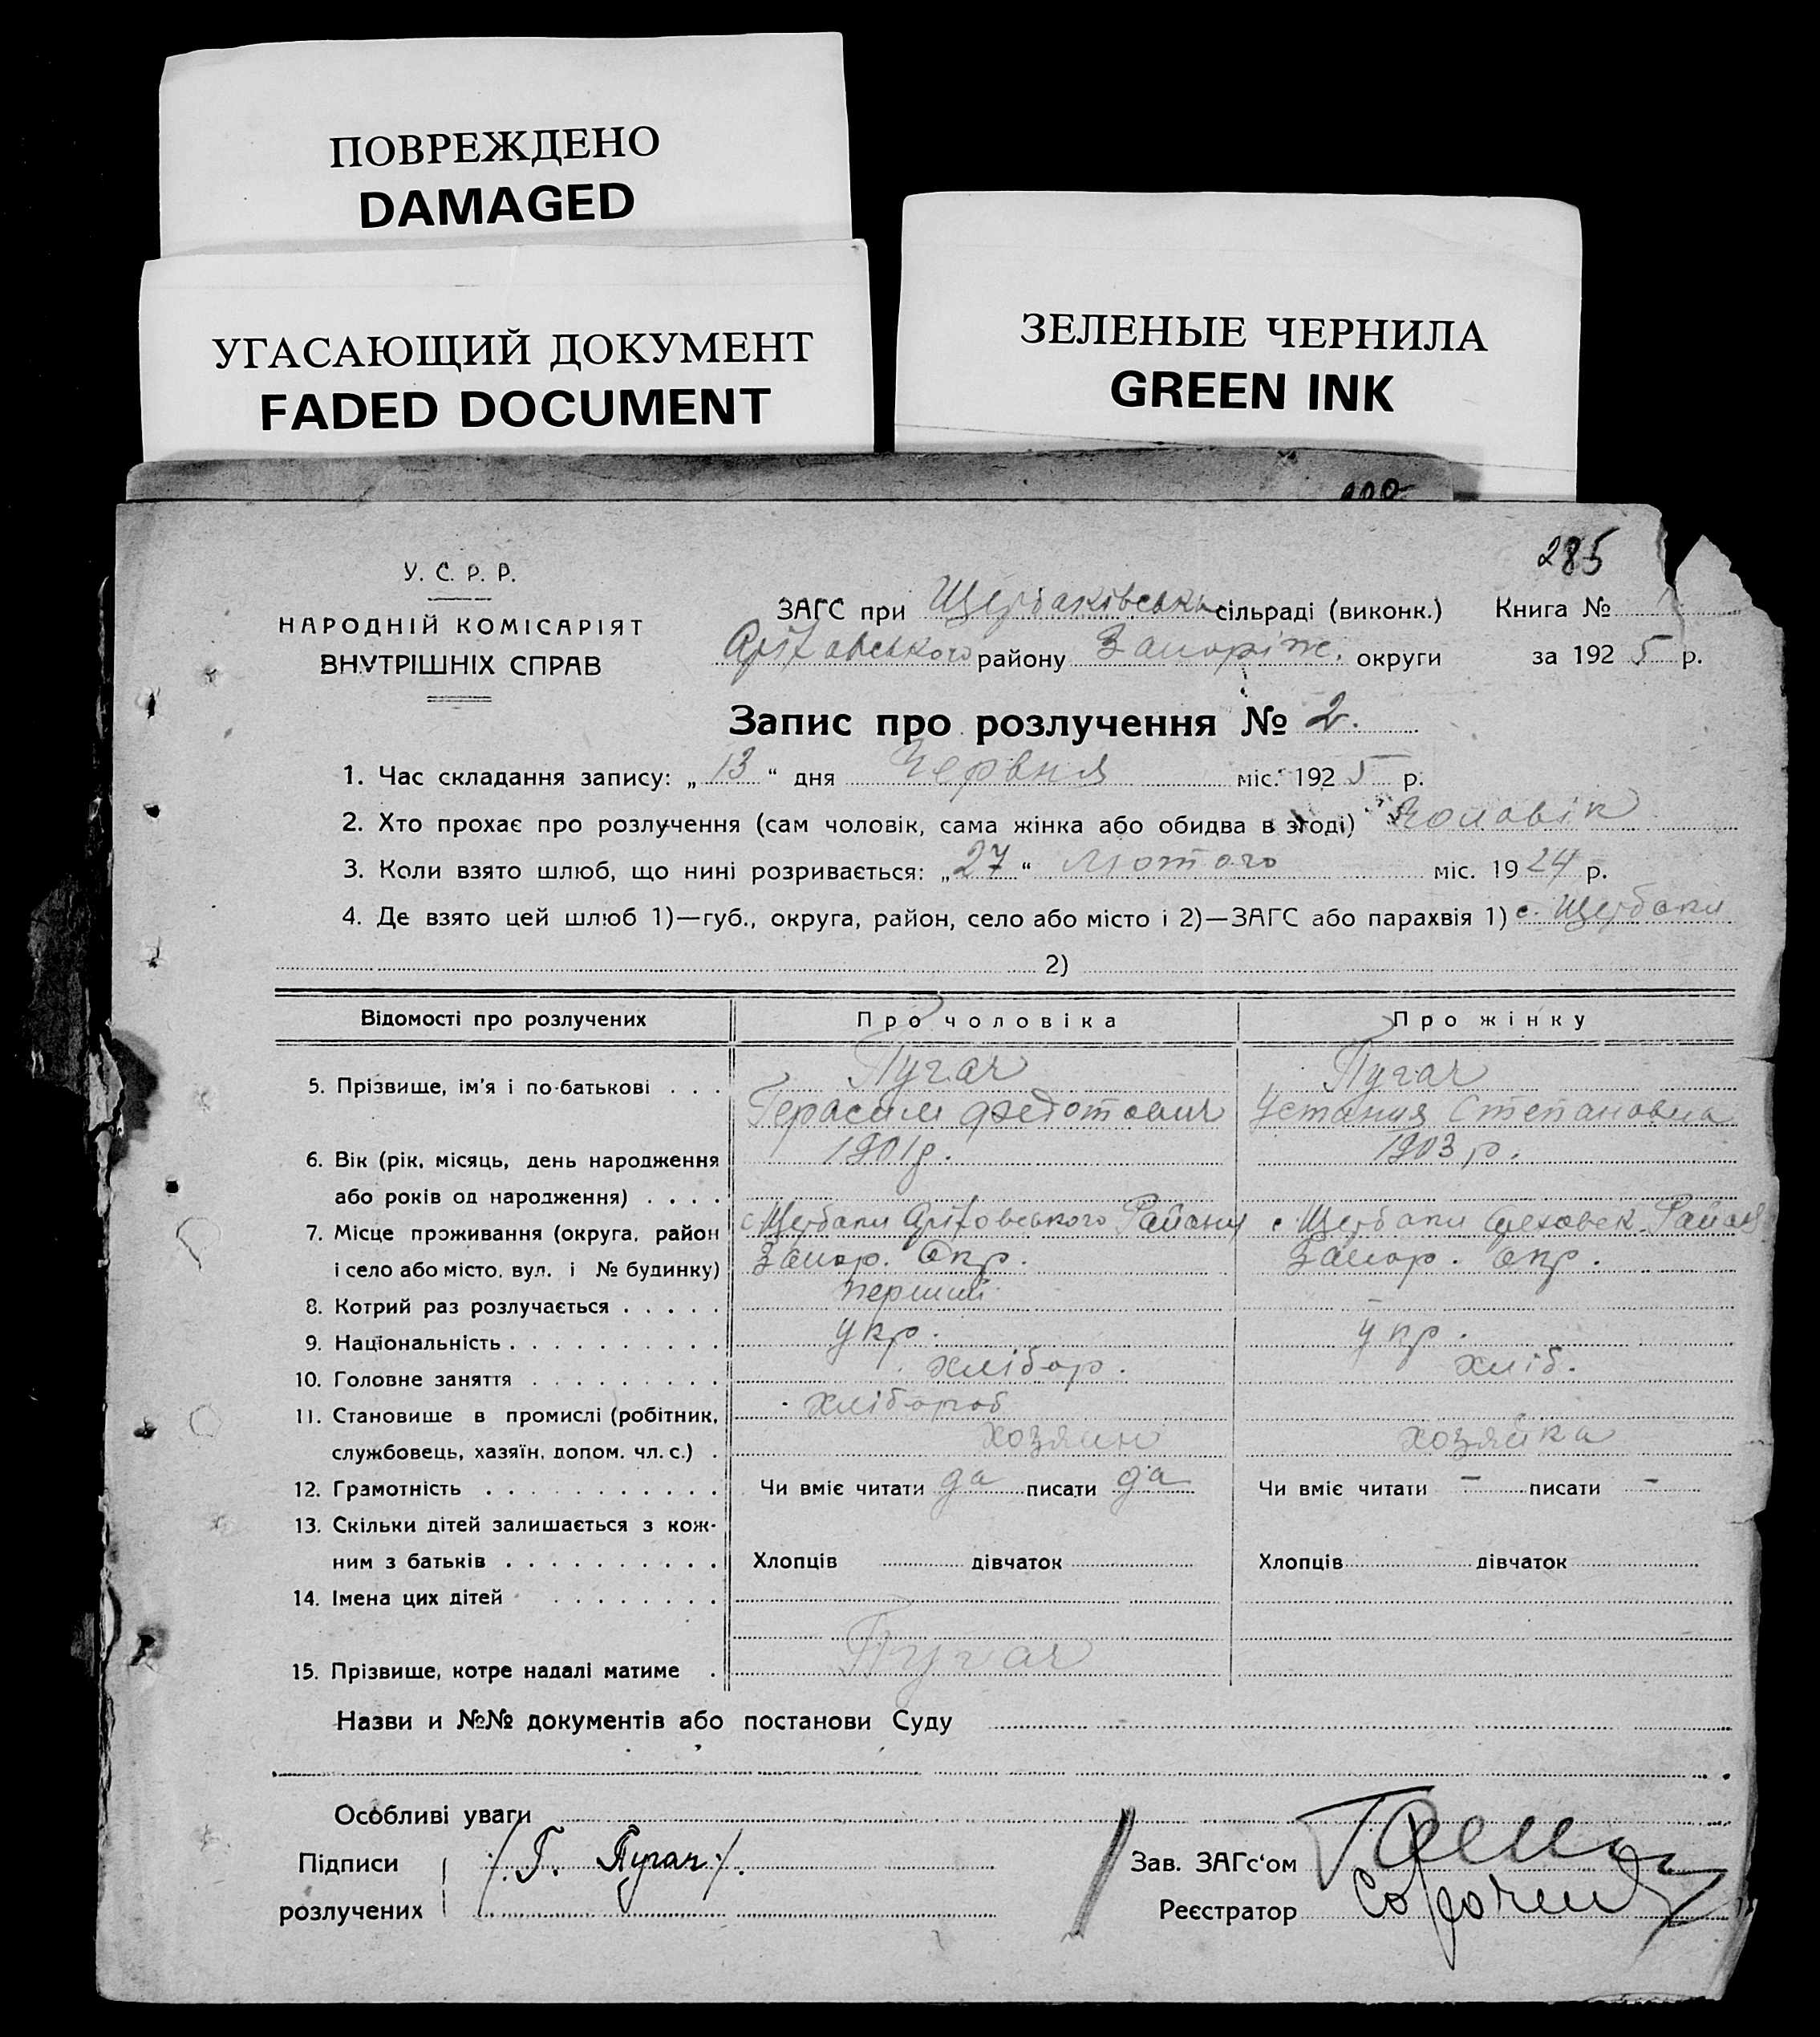 ПОВРЕЖДЕНО
DAMAGED
УГАСАЮЩИЙ ДОКУМЕНТ
FADED DOCUMENT
ЗЕЛЕНЫЕ ЧЕРНИЛА
GREEN INK
285
У. С. Р. Р.
НАРОДНІЙ КОМІСАРІЯТ
ВНУТРІШНІХ СПРАВ
ЗАГС при Щербаківській сільраді (виконк.) Книга №
Оріхівського району Запоріж. округи за 192 5 р.
Запис про розлучення № 2.
1. Час складання запису: „ 13 “ дня Червня міс. 192 5 р.
2. Хто прохає про розлучення (сам чоловік, сама жінка або обидва в згоді) Чоловік
3. Коли взято шлюб, що нині розривається: „ 27 “ лютого міс. 19 24 р.
4. Де взято цей шлюб 1)—губ., округа, район, село або місто і 2)—ЗАГС або парахвія 1) с. Щербаки
2)
Відомості про розлучених Про чоловіка Про жінку
Пугач Пугач
5. Прізвище, ім'я і по-батькові . . .
Герасим Федотович Устания Степановна
6. Вік (рік, місяць, день народження 1901 р. 1903 р.
або років од народження) . . . .
7. Місце проживання (округа, район с. Щербаки Оріховського Району с. Щербаки Ореховск. Район
і село або місто, вул. і № будинку) Запор. Окр. Запор. Окр.
8. Котрий раз розлучається . . . . . перший –
9. Національність . . . . . . . . . . укр. укр.
10. Головне заняття . . . . . . . . . хлібор. хліб.
11. Становище в промислі (робітник, хлібороб
службовець, хазяїн, допом. чл. с.) . хозяин хозяйка
12. Грамотність . . . . . . . . . . . Чи вміє читати да писати да Чи вміє читати – писати –
13. Скільки дітей залишається з кож-
ним з батьків . . . . . . . . . . Хлопців дівчаток Хлопців дівчаток
14. Імена цих дітей . . . . . . . .
15. Прізвище, котре надалі матиме . Пугач
Назви и №№ документів або постанови Суду
Особливі уваги
Підписи /Г. Пугач/. Зав. ЗАГс'ом
розлучених Реєстратор